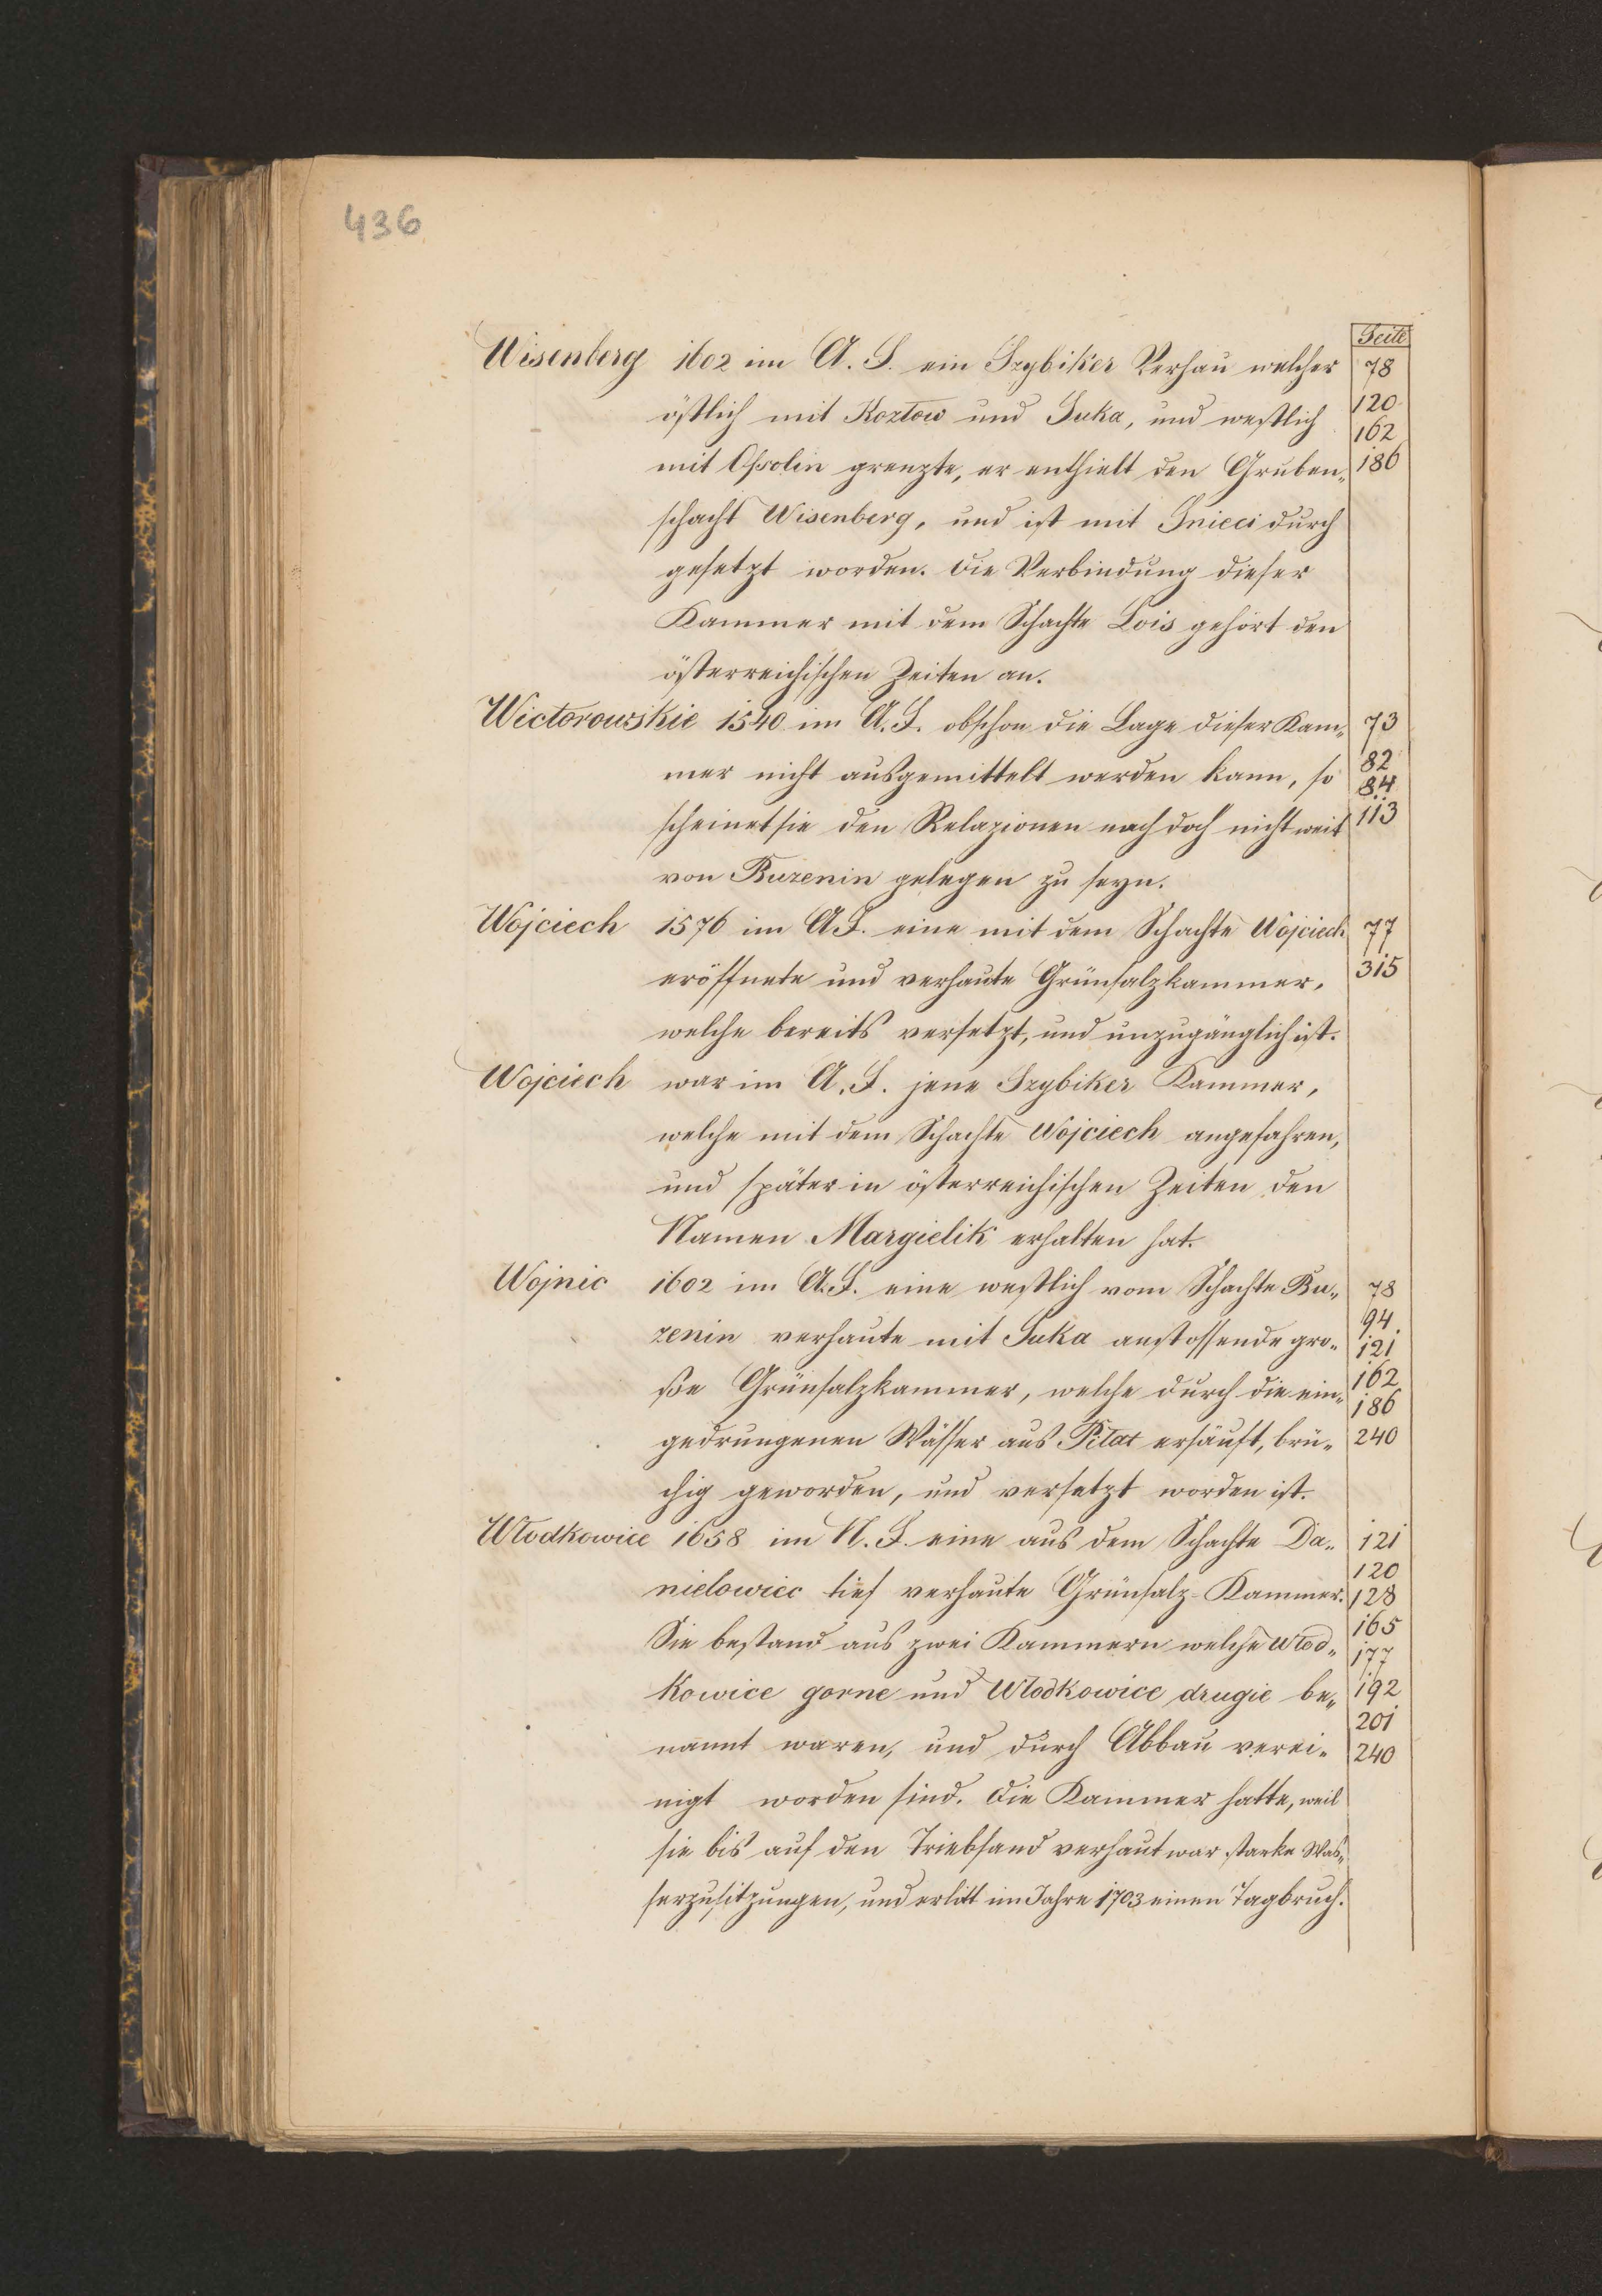 436
Seite
Wisenberg 1602 im A. S. ein Szybiker Verhau welcher 78
östlich mit Kozłow und Suka, und westlich 120
162
mit Ossolin grenzte, er enthielt den Gruben„ 186
schacht Wisenberg, und ist mit Gnieci durch
gesetzt worden. Die Verbindung dieser
Kammer mit dem Schachte Lois gehört den
österreichischen Zeiten an.
Wictorowskie 1540 im A. F. obschon die Lage dieser Kam„ 73
mer nicht ausgemittelt werden kann, so 82
84
scheinet sie den Relazionen nach doch nicht weit 113
von Buzenin gelegen zu seyn.
Wojciech 1576 im A F. eine mit dem Schachte Wojciech 77
eröffnete und verhaute Grünsalzkammer, 315
welche bereits versetzt, und unzugänglich ist.
Wojciech war im A. F. jene Szybiker Kammer,
welche mit dem Schachte Wojciech angefahren,
und später in österreichischen Zeiten den
Namen Margielik erhalten hat.
Wojnic 1602 im A. F. eine westlich vom Schachte Bu„ 78
94
zenin verhaute mit Suka anstossende gro„ 121
162
ße Grünsalzkammer, welche durch die ein„ 186
gedrungenen Wässer aus Pilat ersäuft, brü„ 240
chig geworden, und versetzt worden ist.
Włodkowice 1658 im N. F. eine aus dem Schachte Da„ 121
120
nielowiec tief verhaute Grünsalz-Kammer. 128
Sie bestand aus zwei Kammern welche Włod„ 165
177
kowice gorne und Włodkowice drugie be„ 192
201
nannt waren, und durch Abbau verei„ 240
nigt worden sind. Die Kammer hatte, weil
sie bis auf den Triebsand verhaut war starke Was„
serzusitzungen, und erlitt im Jahre 1703 einen Tagbruch.